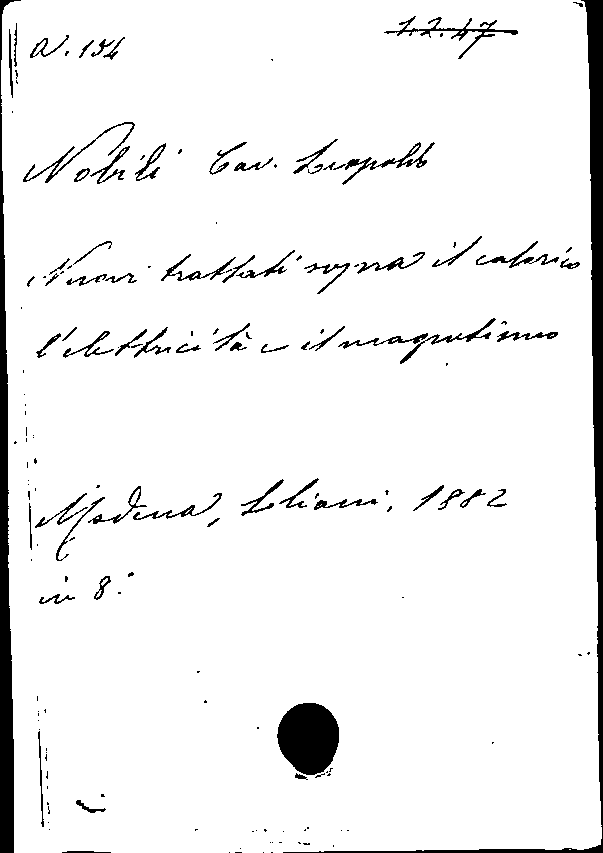 1.2.47
a. 154
Nobili Cav. Leopoldo
Nuovi trattati sopra il calorico
l'elettricità e il magnetismo
Modena, 1882
in 8.°